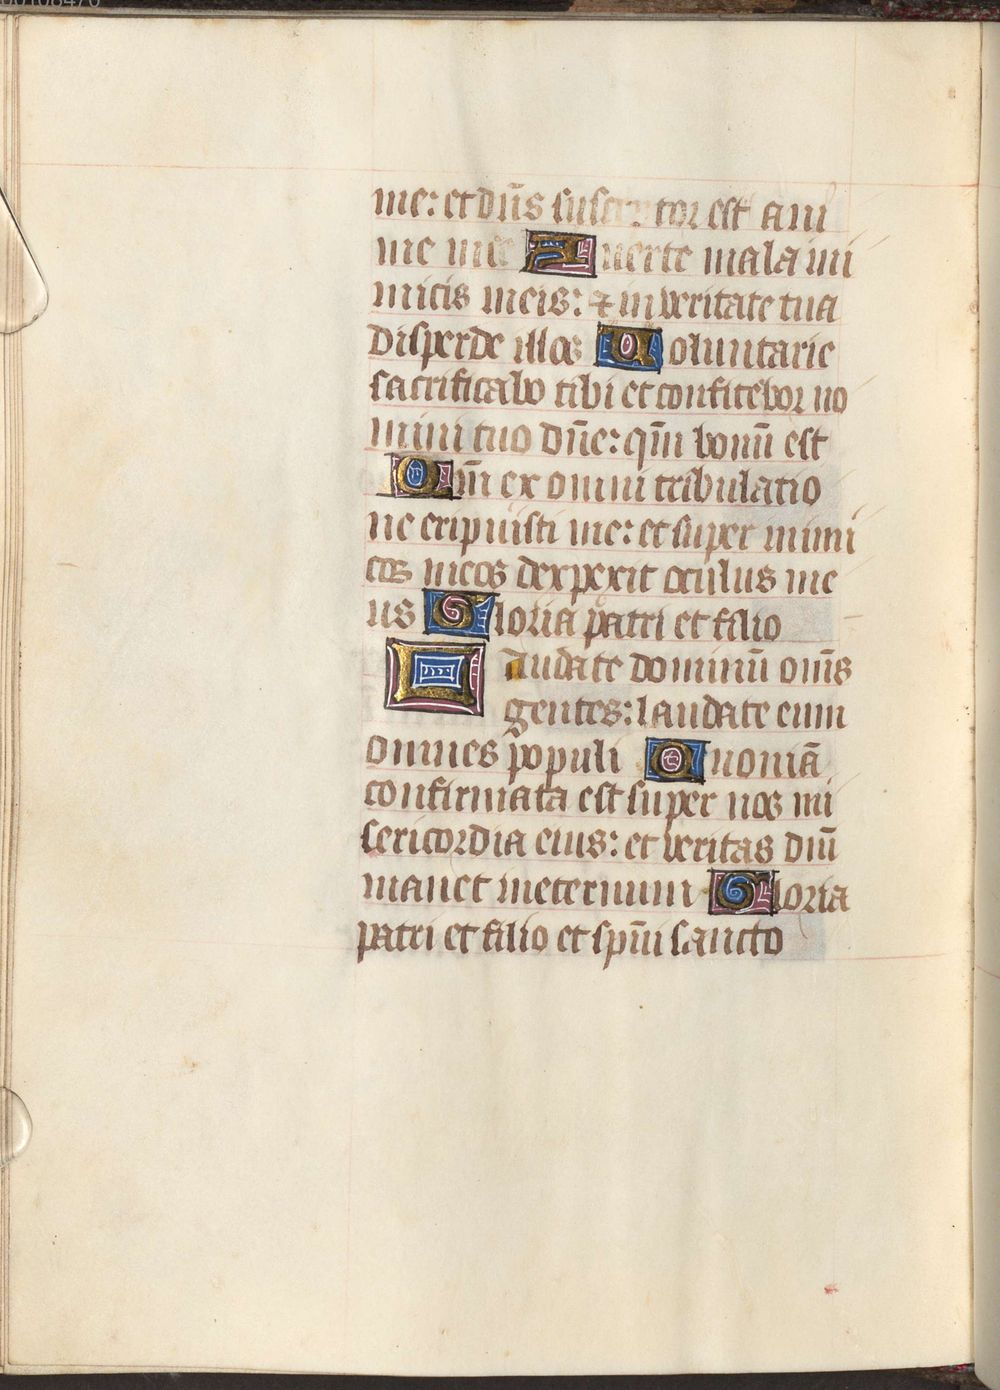 me: et dn̄s susceptor est ani
me mee Auerte mala ini
micis meis: ⁊ in veritate tua
disperde illos Voluntarie
sacrificabo tibi et confitebor no
mini tuo dn̄e: qm̄ bonū est
Qm̄ ex omni tribulatio
ne eripuisti me: et super inimi
cos meos dexpexit oculus me
us Gloria patri et filio
Laudate dominū oms̄
gentes: laudate eum
omnes populi Quoniā
confirmata est super nos mi
sericordia eius: et veritas dnī
manet ineternum Gloria
patri et filio et spm̄ sancto